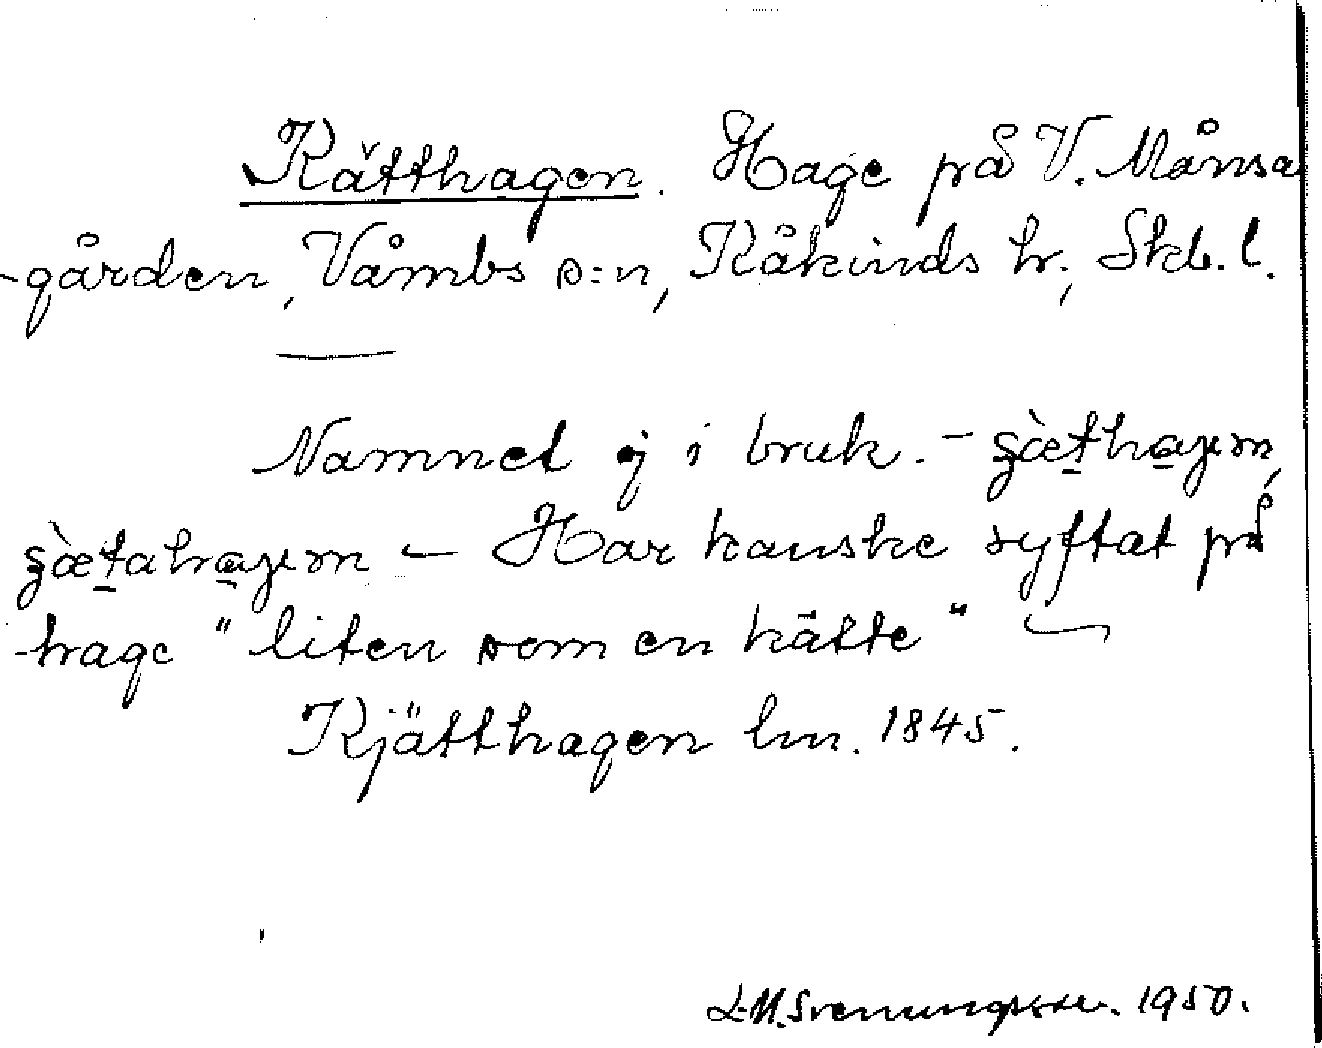 Kätthagen. Hage på V. Månsa
-gården, Våmbs s:n, Kåkinds hr., Skb. l.
Namnet ej i bruk. -
- Har kanske syftat på
hage "liten som en kätte"
Kjätthagen lm. 1845.
L.M. Svenungsson. 1950.